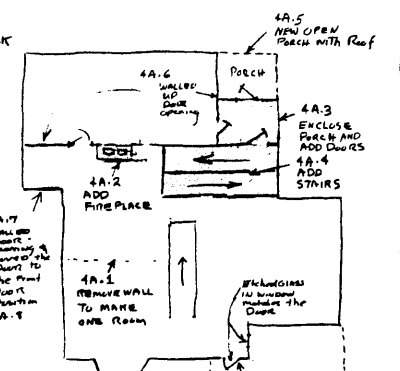 4A.5
NEW OPEN
PORCH WITH ROOF
4A.6
WALLED
UP
DOOR
OPENING
PORCH
4A.3
ENCLOSE
PORCH AND
ADD DOORS
4A.4
ADD
STAIRS
4A.2
ADD
FIREPLACE
4A.1
REMOVE WALL
TO MAKE
ONE ROOM
Etched GLASS
IN WINDOW
matches the
DOOR
the
DOOR to
the Front